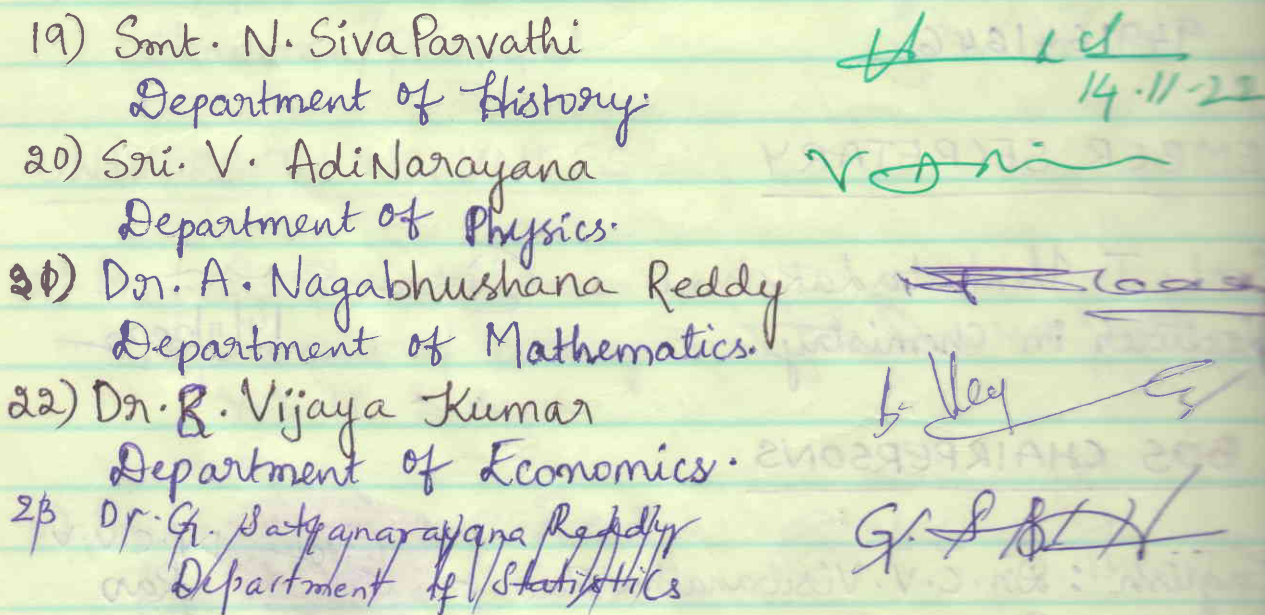 19) Smt. N. Siva Parvathi
Department of History.
14.11.22
20) Sri. V. Adi Narayana
Department of Physics.
21) Dr. A. Nagabhushana Reddy
Department of Mathematics.
22) Dr. B. Vijaya Kumar
Department of Economics.
BOS CHAIRPERSONS
23 Dr. G. Satyanarayana Reddy
Department of Statistics